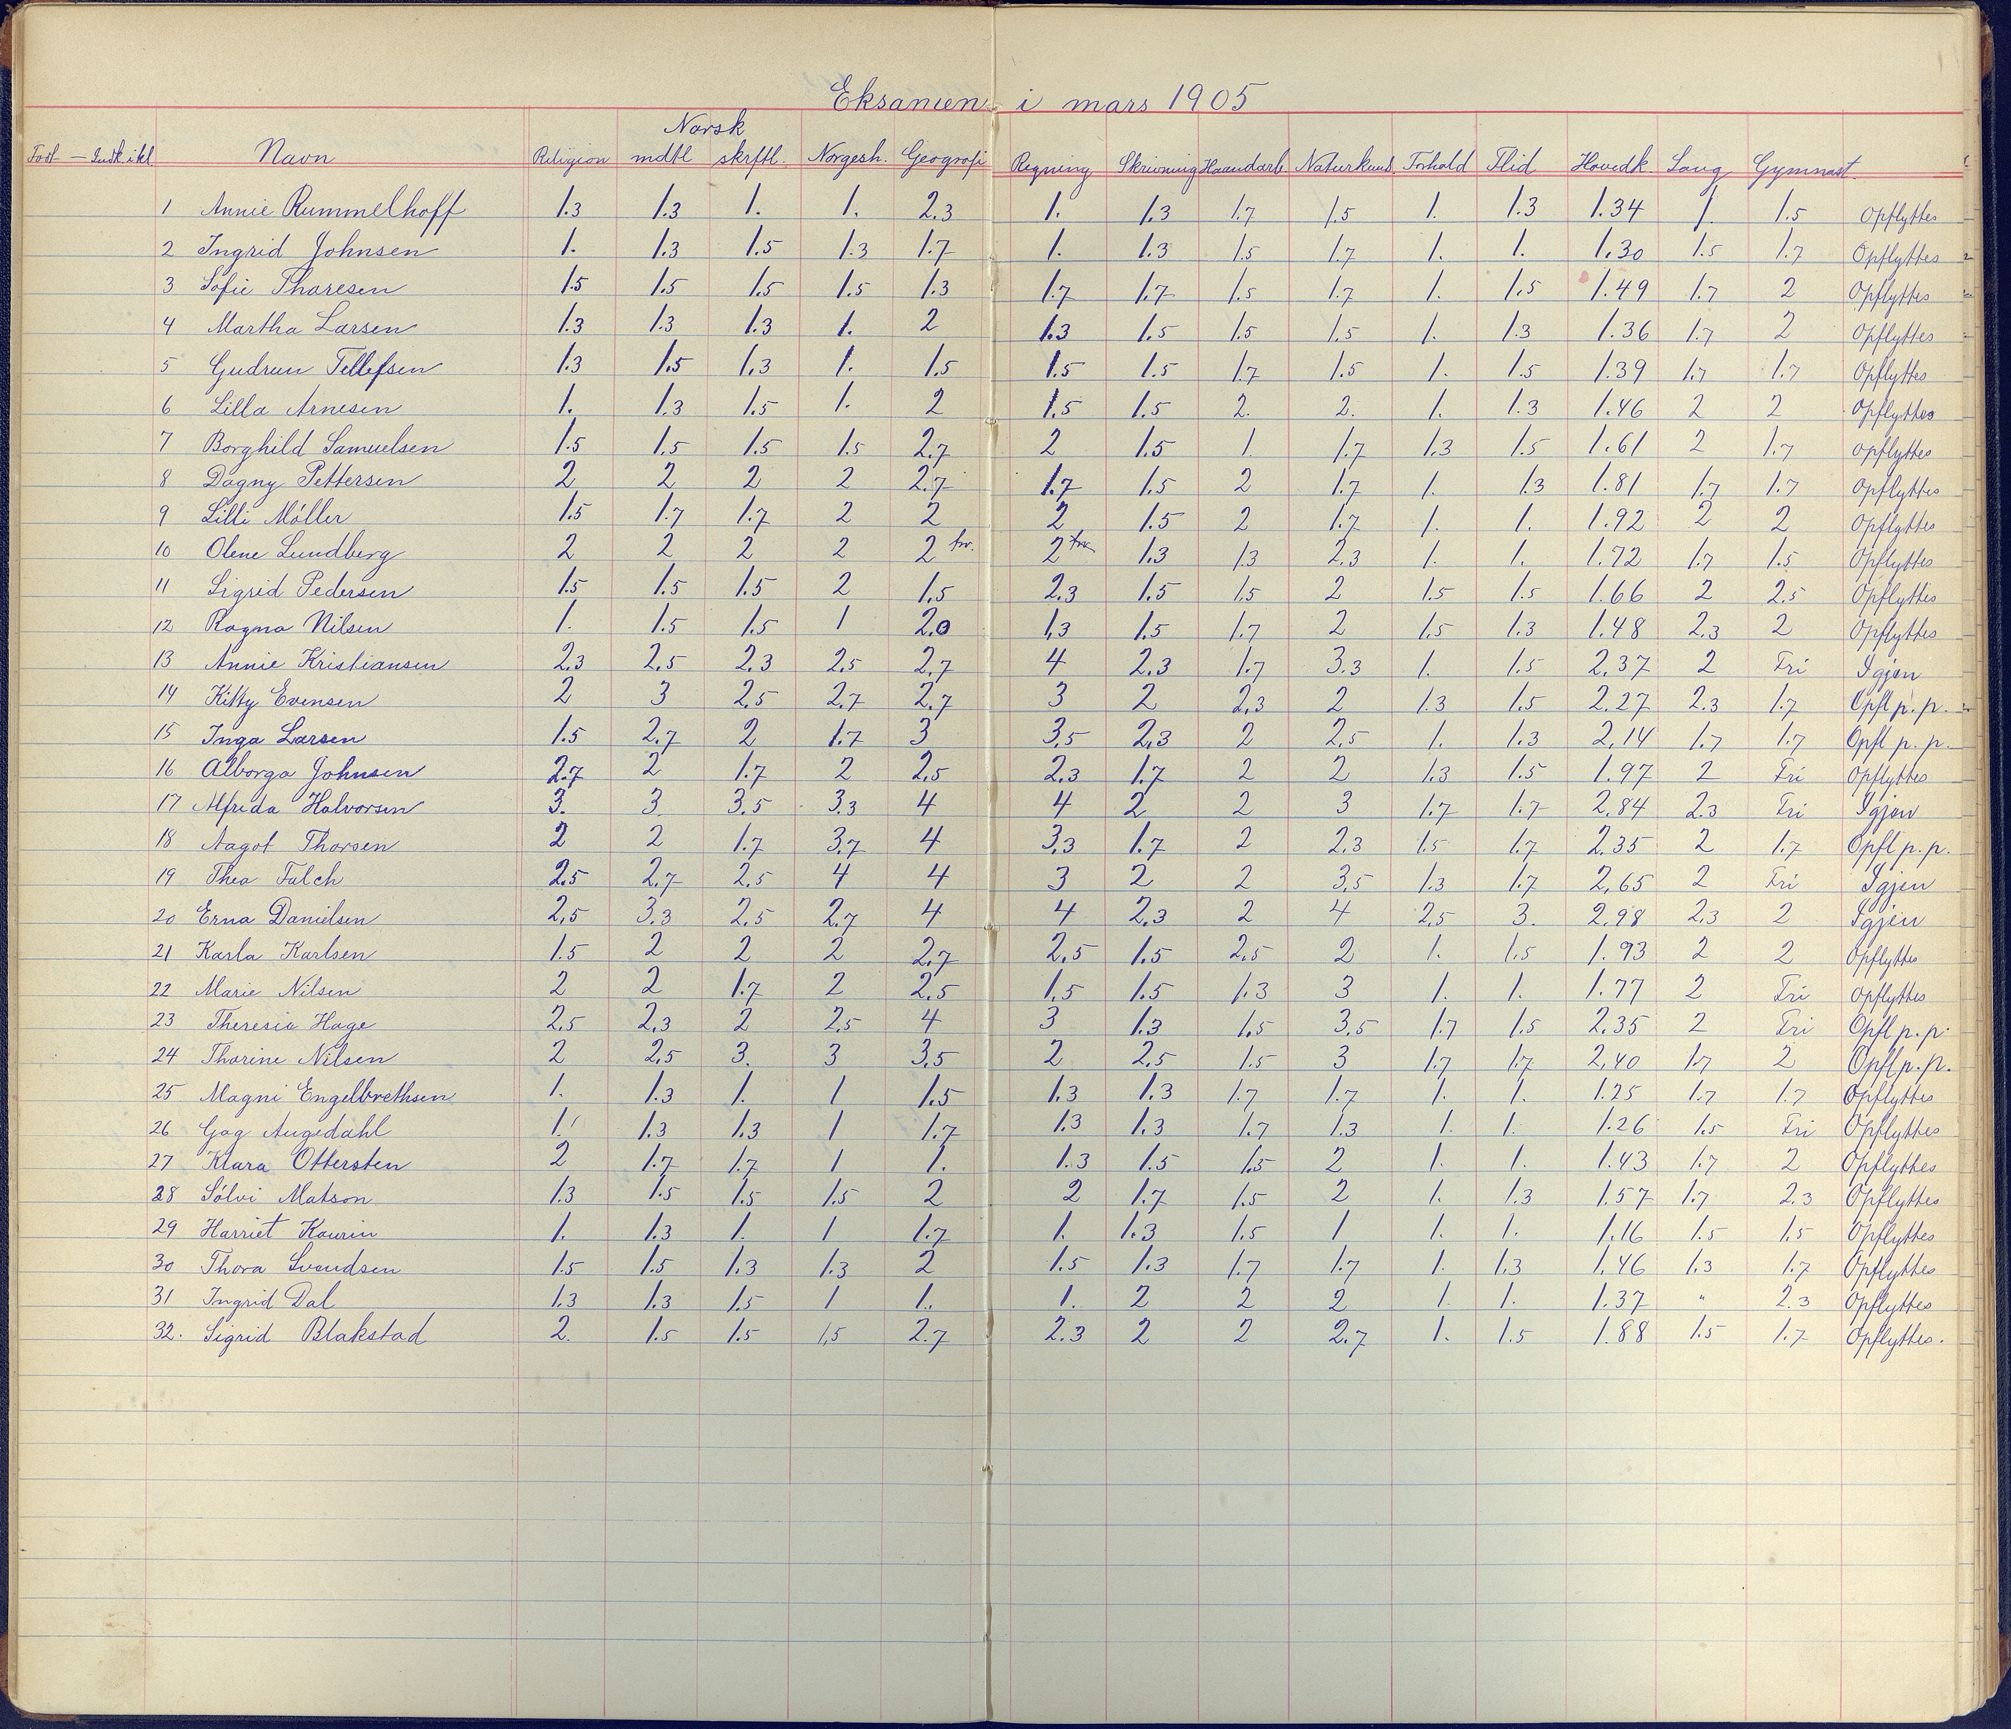 Eksamen i mars 1905
Norsk
Født — Indk. i kl. Navn Religion mdtl skrftl. Norgesh. Geografi Regning Skrivning Haandarb. Naturkund. Forhold Flid Hovedk. Sang Gymnast.
1 Annie Rummelhoff 1.3 1.3 1. 1. 2.3 1. 1.3 1.7 1.5 1. 1.3 1.34 1. 1.5 Opflyttes
2 Ingrid Johnsen 1. 1.3 1.5 1.3 1.7 1. 1.3 1.5 1.7 1. 1. 1.30 1.5 1.7 Opflyttes
3 Sofie Thoresen 1.5 1.5 1.5 1.5 1.3 1.7 1.7 1.5 1.7 1. 1.5 1.49 1.7 2 Opflyttes
4 Martha Larsen 1.3 1.3 1.3 1. 2 1.3 1.5 1.5 1.5 1. 1.3 1.36 1.7 2 Opflyttes
5 Gudrun Tellefsen 1.3 1.5 1.3 1. 1.5 1.5 1.5 1.7 1.5 1. 1.5 1.39 1.7 1.7 Opflyttes
6 Lilla Arnesen 1. 1.3 1.5 1. 2 1.5 1.5 2. 2. 1. 1.3 1.46 2 2 Opflyttes
7 Borghild Samuelsen 1.5 1.5 1.5 1.5 2.7 2 1.5 1. 1.7 1.3 1.5 1.61 2 1.7 Opflyttes
8 Dagny Pettersen 2 2 2 2 2.7 1.7 1.5 2 1.7 1. 1.3 1.81 1.7 1.7 Opflyttes
9 Lilli Möller 1.5 1.7 1.7 2 2 2 1.5 2 1.7 1. 1. 1.92 2 2 Opflyttes
10 Olene Lundberg 2 2 2 2 2 tv. 2 tv. 1.3 1.3 2.3 1. 1. 1.72 1.7 1.5 Opflyttes
11 Sigrid Pedersen 1.5 1.5 1.5 2 1.5 2.3 1.5 1.5 2 1.5 1.5 1.66 2 2.5 Opflyttes
12 Ragna Nilsen 1. 1.5 1.5 1 2.0 1.3 1.5 1.7 2 1.5 1.3 1.48 2.3 2 Opflyttes
13 Annie Kristiansen 2.3 2.5 2.3 2.5 2.7 4 2.3 1.7 3.3 1. 1.5 2.37 2 Fri Igjen
14 Kitty Evensen 2 3 2.5 2.7 2.7 3 2 2.3 2 1.3 1.5 2.27 2.3 1.7 Opfl p. p.
15 Inga Larsen 1.5 2.7 2 1.7 3 3.5 2.3 2 2.5 1. 1.3 2.14 1.7 1.7 Opfl p. p.
16 Alborga Johnsen 2.7 2 1.7 2 2.5 2.3 1.7 2 2 1.3 1.5 1.97 2 Fri Opflyttes
17 Alfrida Halvorsen 3. 3. 3.5 3.3 4 4 2 2 3 1.7 1.7 2.84 2.3 Fri Igjen
18 Aagot Thorsen 2 2 1.7 3.7 4 3.3 1.7 2 2.3 1.5 1.7 2.35 2 1.7 Opfl p. p.
19 Thea Falch 2.5 2.7 2.5 4 4 3 2 2 3.5 1.3 1.7 2.65 2 Fri Igjen
20 Erna Danielsen 2.5 3.3 2.5 2.7 4 4 2.3 2 4 2.5 3. 2.98 2.3 2 Igjen
21 Karla Karlsen 1.5 2 2 2 2.7 2.5 1.5 2.5 2 1. 1.5 1.93 2 2 Opflyttes
22 Marie Nilsen 2 2 1.7 2 2.5 1.5 1.5 1.3 3 1. 1. 1.77 2 Fri Opflyttes
23 Theresia Hage 2.5 2.3 2 2.5 4 3 1.3 1.5 3.5 1.7 1.5 2.35 2 Fri Opfl p. p.
24 Thorine Nilsen 2 2.5 3. 3 3.5 2 2.5 1.5 3 1.7 1.7 2.40 1.7 2 Opfl p. p.
25 Magni Engelbrethsen 1. 1.3 1. 1 1.5 1.3 1.3 1.7 1.7 1. 1. 1.25 1.7 1.7 Opflyttes
26 Gag Augedahl 1. 1.3 1.3 1 1.7 1.3 1.3 1.7 1.3 1. 1. 1.26 1.5 Fri Opflyttes
27 Klara Ottersten 2 1.7 1.7 1 1. 1.3 1.5 1.5 2 1. 1. 1.43 1.7 2 Opflyttes
28 Sólvi Matson 1.3 1.5 1.5 1.5 2 2 1.7 1.5 2 1. 1.3 1.57 1.7 2.3 Opflyttes
29 Harriet Kaurin 1. 1.3 1. 1 1.7 1. 1.3 1.5 1 1. 1. 1.16 1.5 1.5 Opflyttes
30 Thora Svendsen 1.5 1.5 1.3 1.3 2 1.5 1.3 1.7 1.7 1. 1.3 1.46 1.3 1.7 Opflyttes
31 Ingrid Dal 1.3 1.3 1.5 1 1. 1. 2 2 2 1. 1. 1.37 " 2.3 Opflyttes
32. Sigrid Blakstad 2. 1.5 1.5 1.5 2.7 2.3 2 2 2.7 1. 1.5 1.88 1.5 1.7 Opflyttes.